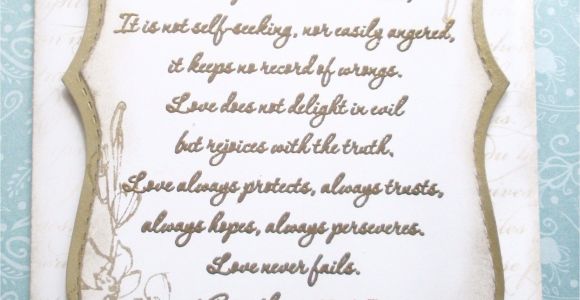 It is not self-seeking, nor easily angered,
it keeps no record of wrongs.
Love does not delight in evil
but rejoices with the truth.
Love always protects, always trusts,
always hopes, always perseveres.
Love never fails.